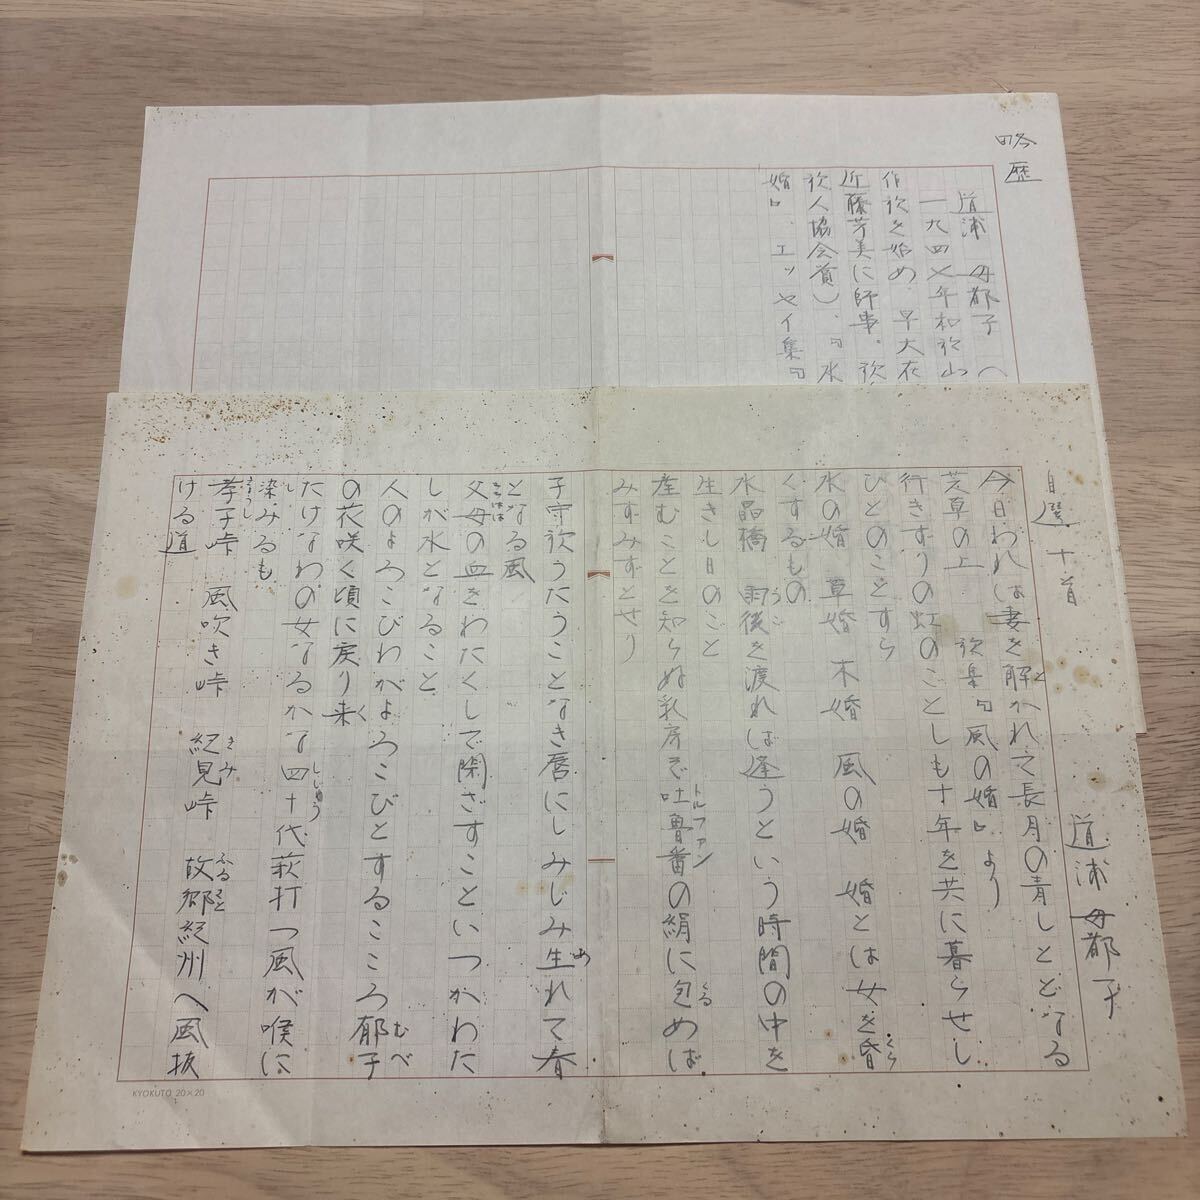 略歴
道浦 母都子(
一九四七年和歌山
作歌を始め、早大在
近藤芳美に師事。歌
歌人協会賞)、『水
婚』、エッセイ集『
自選十首
道浦 母都子
今日われは妻を解かれて長月の青しとどなる
芝草の上 歌集『風の婚』より
行きずりの虹のごとしも十年を共に暮らせし
ひとのことすら
水の婚 草婚 木婚 風の婚 婚とは女を昏
くするもの
水晶橋 雨後を渡れば逢うという時間の中を
生きし日のごと
産むことを知らぬ乳房ぞ吐魯番の絹に包めば
みずみずとせり
子守歌うたうことなき唇にしみじみ生れて春
となる風
父母の血をわたくしで閉ざすこといつかわた
しが水となること
人のよろこびわがよろこびとするこころ郁子
の花咲く頃に戻り来
たけなわの女なるかな四十代萩打つ風が喉に
染みるも
孝子峠 風吹き峠 紀見峠 故郷紀州へ風抜
ける道
KYOKUTO 20×20